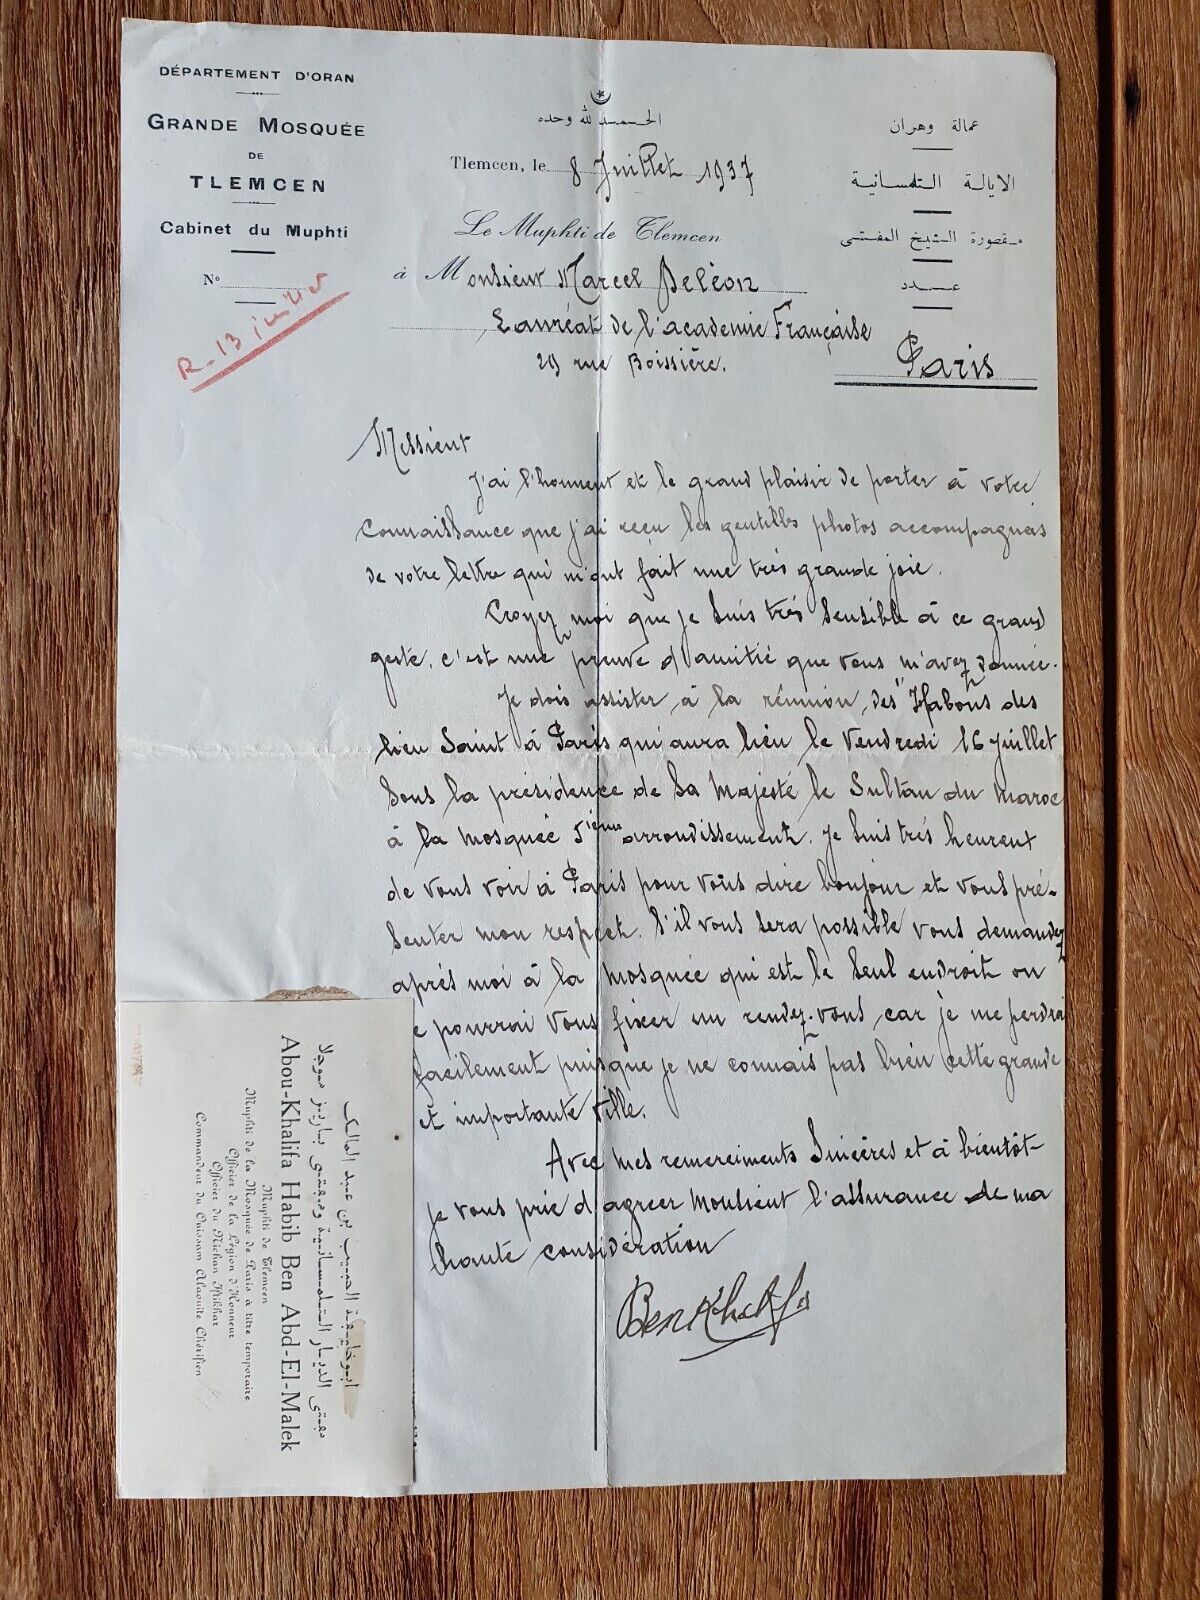 DÉPARTEMENT D'ORAN
GRANDE MOSQUÉE
DE
TLEMCEN
Cabinet du Muphti
N°
R-13 juillet
الحمد لله وحده
Tlemcen, le 8 Juillet 1937
Le Muphti de Tlemcen
à Monsieur Marcel Deléon
Lauréat de l'academie Française
29 rue Boissière.
Paris
عمالة وهران
الايالة التلمسانية
مقصورة الشيخ المفتى
عدد
Messieur
J'ai l'honneur et le grand plaisir de porter à votre
connaissance que j'ai reçu les gentilles photos accompagnés
de votre lettre qui m'ont fait une très grande joie.
Croyez moi que je suis très sensible à ce grand
geste, c'est une preuve d'amitié que vous m'avez donnée.
Je dois assister à la réunion des "Habous des
lieu Saint à Paris qui aura lieu le Vendredi 16 juillet
sous la présidence de Sa Majesté le Sultan du Maroc
à la mosquée 5ième arrondissement. Je suis très heureux
de vous voir à Paris pour vous dire bonjour et vous pré-
senter mon respect. S'il vous sera possible vous demandez
après moi à la mosquée qui est le seul endroit ou
je pourrai vous fixer un rendez-vous car je me perdrai
facilement puisque je ne connais pas bien cette grande
et importante ville.
Avec mes remerciments Sincères et à bientôt-
je vous prie d'agreer monsieur l'assurance de ma
haute considération
BenKhalifa
ابوخليفة الحبيب بن عبد المالك
مفتى الديار التلمسانية ومفتى باريز موجلا
Abou-Khalifa Habib Ben Abd-El-Malek
Muphti de Tlemcen
Muphti de la Mosquée de Paris à titre temporaire
Officier de la Légion d'Honneur
Officier du Nichan Iftikhar
Commandeur du Ouissam Alaouite Chérifien